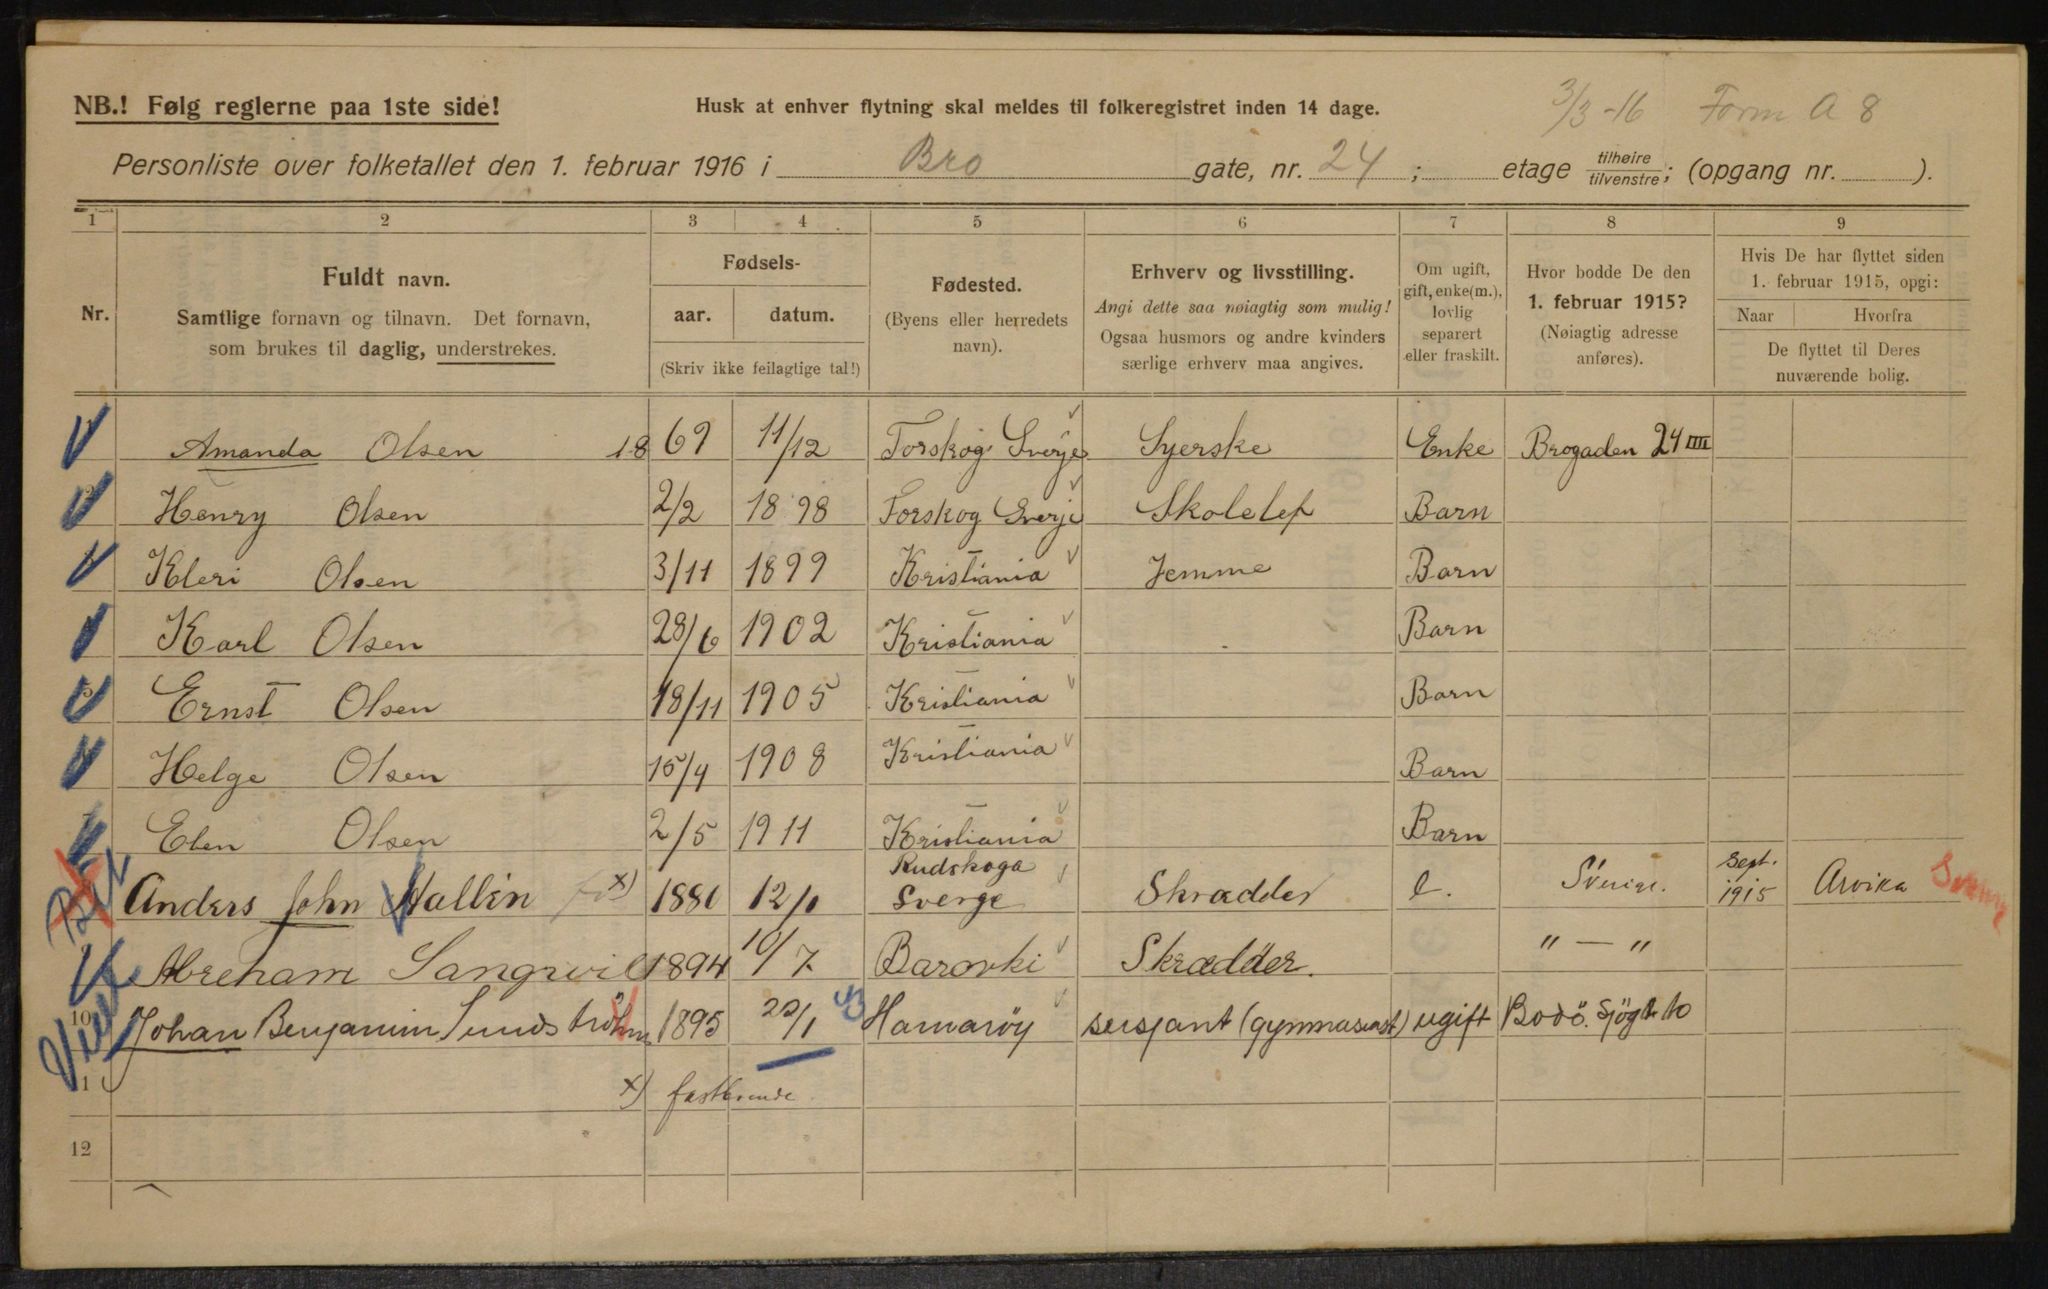 NB.! Følg reglerne paa 1ste side!
Husk at enhver flytning skal meldes til folkeregistret inden 14 dage.
3/3-16 Form A 8
Personliste over folketallet den 1. februar 1916 i Bro gate, nr. 24 ; etage tilhøire/tilvenstre; (opgang nr. ).
1 2 3 4 5 6 7 8 9
Nr.
Fuldt navn.
Samtlige fornavn og tilnavn. Det fornavn,
som brukes til daglig, understrekes.
Fødsels-
aar. datum.
(Skriv ikke feilagtige tal!)
Fødested.
(Byens eller herredets
navn).
Erhverv og livsstilling.
Angi dette saa nøiagtig som mulig!
Ogsaa husmors og andre kvinders
særlige erhverv maa angives.
Om ugift,
gift, enke(m.),
lovlig
separert
eller fraskilt.
Hvor bodde De den
1. februar 1915?
(Nøiagtig adresse
anføres).
Hvis De har flyttet siden
1. februar 1915, opgi:
Naar Hvorfra
De flyttet til Deres
nuværende bolig.
Amanda Olsen 18 69 11/12 Torskog Sverje Syerske Enke Brogaden 24 IIII
Henry Olsen 2/2 1898 Torskog Sverje Barn
Kleri Olsen 3/11 1899 Kristiania Jemme Barn
Karl Olsen 28/6 1902 Kristiania Barn
5 Ernst Olsen 18/11 1905 Kristiania Barn
Helge Olsen 15/4 1908 Kristiania Barn
Elen Olsen 2/5 1911 Kristiania Barn
Anders John Hallin x) 12/1 Rudskoga Sverge Skrædder e. Sverige. Sept. 1915 Arvika
Abreham 1894 10/7 Barovki Skrædder. " — "
10 Johan Benjamin Sundström 1895 Hamarøy sersjant (gymnasiast) ugift Bodö. Sjögt. 10
11
x) fastboende.
12